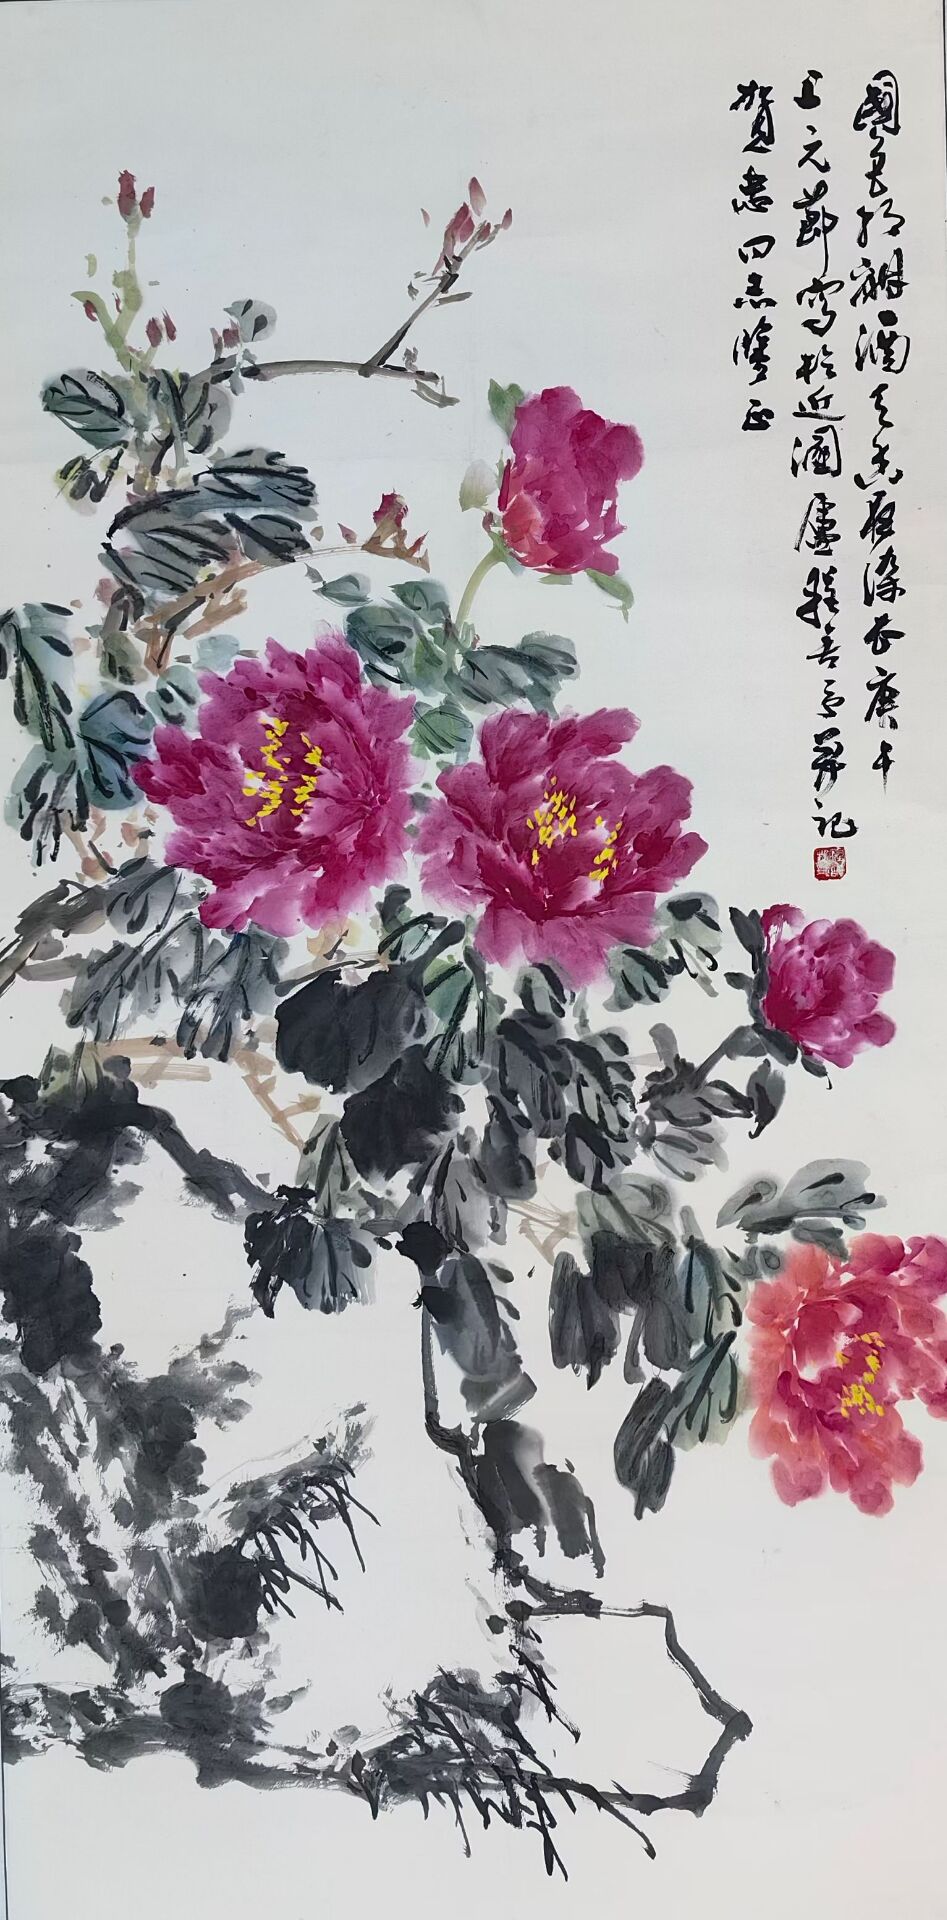 國色朝酣酒天香夜染衣庚午
上元節寫於近園廬程音言并記
賀忠同志隨正